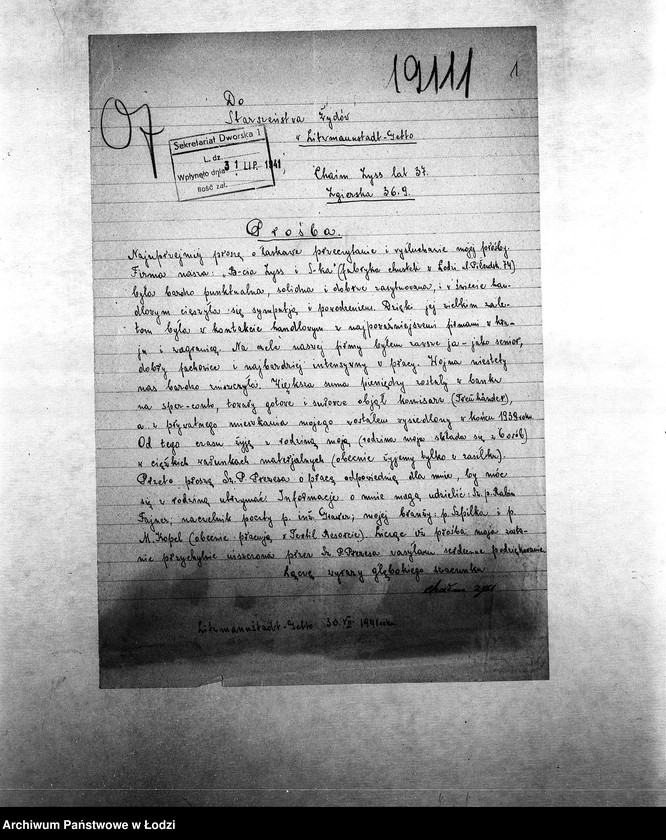 19111 1
Do
Starszeństwa Żydów
w Litzmannstadt-Getto
Sekretariat Dworska 1
L. dz.
Wpłynęło dnia 31 LIP. 1941
Ilość zał.
Chaim Zyss lat 37.
Zgierska 36.9.
Prośba.
Najuprzejmiej proszę o łaskawe przeczytanie i wysłuchanie mojej prośby.
Firma nasza: „B-cia Zyss i S-ka" (fabryka chustek w Łodzi
była bardzo punktualna, solidna i dobrze sytuowana, i w świecie han-
dlowym cieszyła się sympatją i powodzeniem. Dzięki jej wielkim zale-
tom była w kontakcie handlowym z najpoważniejszemi firmami w kra-
ju i zagranicą. Na czele naszej firmy byłem zawsze ja - jako senior,
dobry fachowiec i najbardziej intensywny w pracy. Wojna niestety
nas bardzo zniszczyła. Większa suma pieniędzy zostały w banku
na sper-conto, towary gotowe i surowce objął komisarz (Treuhänder),
a z prywatnego mieszkania mojego zostałem wysiedlony w końcu 1939 roku.
Od tego czasu żyję z rodziną moją (rodzina moja składa się z 6 osób)
w ciężkich warunkach materjalnych (obecnie żyjemy tylko z zasiłku).
Przeto proszę Sz. P. Prezesa o pracę odpowiednią dla mnie, by móc
się z rodziną utrzymać. Informacje o mnie mogą udzielić: Sz. p. Rabin
Fajner; naczelnik poczty p. inż. Grawer; mojej branży: p. Szpilka i p.
M. Kopel (obecnie pracują w Textil Resorcie). Licząc iż prośba moja zosta-
nie przychylnie uiszczona przez Sz. P. Prezesa zasyłam serdeczne podziękowanie.
Łączę wyrazy głębokiego szacunku
Chaim Zyss
Litzmannstadt-Getto 30. VII 1941 roku
Archiwum Państwowe w Łodzi